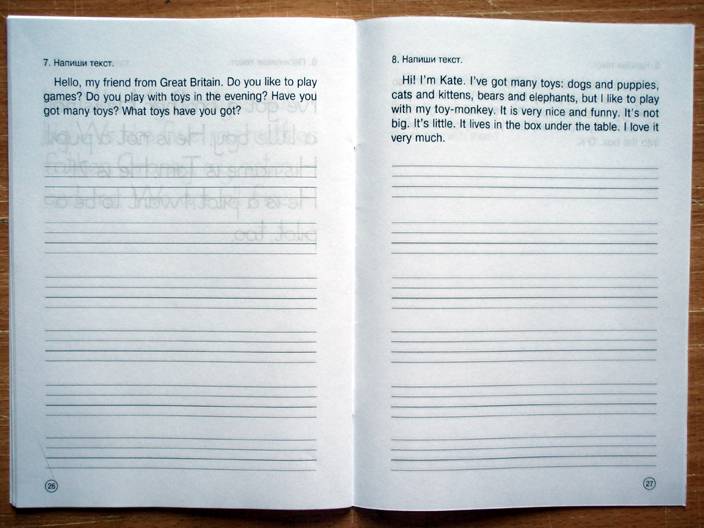 7. Напиши текст.
Hello, my friend from Great Britain. Do you like to play
games? Do you play with toys in the evening? Have you
got many toys? What toys have you got?
26
8. Напиши текст.
Hi! I'm Kate. I've got many toys: dogs and puppies,
cats and kittens, bears and elephants, but I like to play
with my toy-monkey. It is very nice and funny. It's not
big. It's little. It lives in the box under the table. I love it
very much.
27